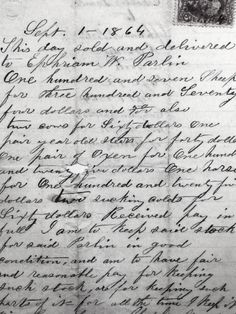 Sept. 1 - 1864
This day sold and delivered
to Ephriam W. Parlin
One hundred and seven Sheep
for three hundred and Seventy
four dollars and also
two cows for Sixty dollars One
pair year old for forty dollars
One pair of Oxen for One hund
and twenty five dollars One horse
for One hundred and twenty five
dollars two sucking colts for
Sixty dollars Received pay in
full I am to keep said stock
for said Parlin in good
condition, and am to have fair
and reasonable pay for keeping
such stock, as for keeping such
parts of it for all the time I keep it